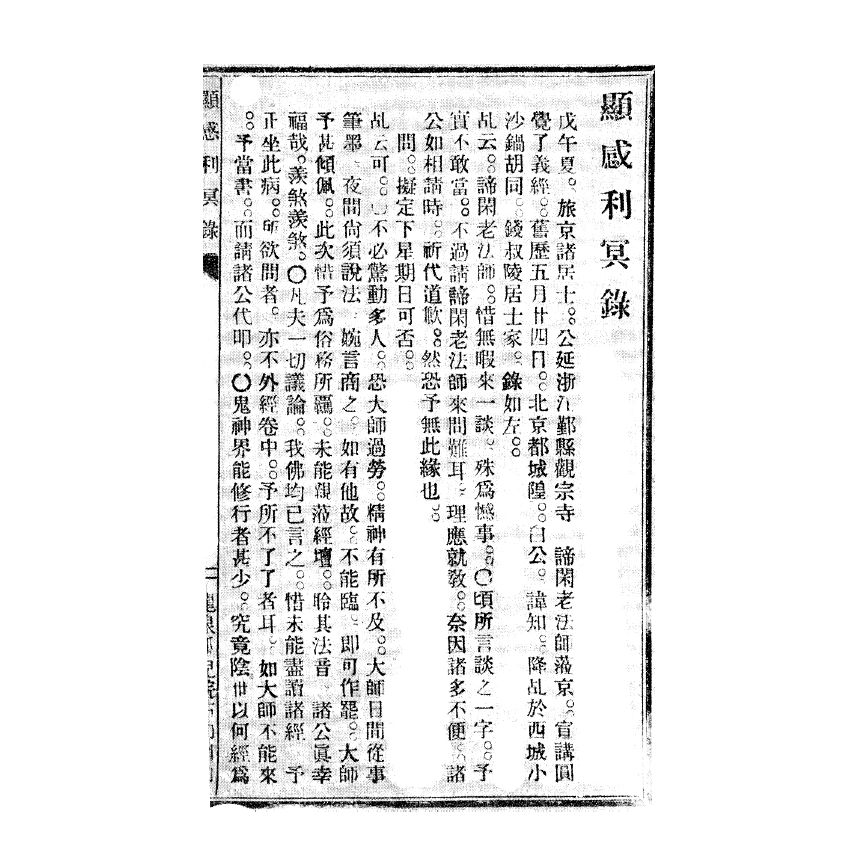 顯感利冥錄
戊午夏。旅京諸居士。公延浙江鄞縣觀宗寺 諦閑老法師蒞京。宣講圓
覺了義經。舊歷五月廿四日。北京都城隍。白公。諱知。降乩於西城小
沙鍋胡同。錢叔陵居士家。錄如左。
乩云。諦閑老法師。惜無暇來一談。殊爲憾事。○頃所言談之一字。予
實不敢當。不過請諦閑老法師來問難耳。理應就敎。奈因諸多不便。諸
公如相請時。祈代道歉。然恐予無此緣也。
問。擬定下星期日可否。
乩云可。不必驚動多人。恐大師過勞。精神有所不及。大師日間從事
筆墨、夜間尙須說法、婉言商之。如有他故。不能臨。即可作罷。大師
予甚傾佩。此次惜予爲俗務所羈。未能親蒞經壇。聆其法音、諸公眞幸
福哉。羨煞羨煞。○凡夫一切議論。我佛均已言之。惜未能盡讀諸經 予
正坐此病。所欲問者。亦不外經卷中。予所不了了者耳。如大師不能來
。予當書。而請諸公代叩。○鬼神界能修行者甚少。究竟陰世以何經爲
顯感利冥錄
一